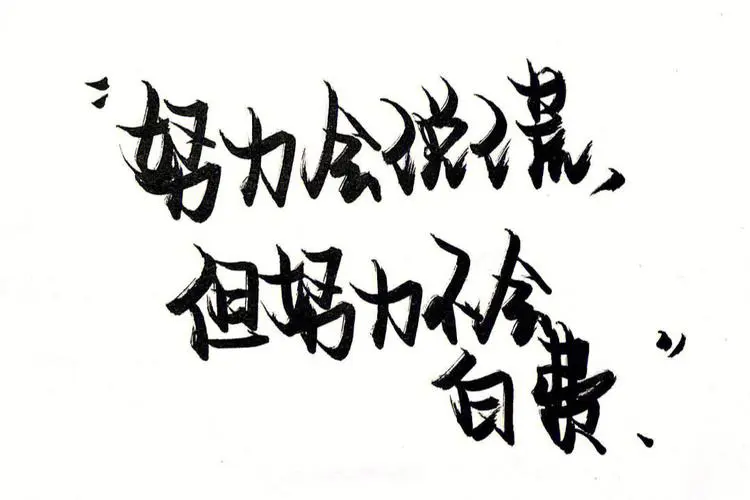 “努力会说谎，
但努力不会
白费、”